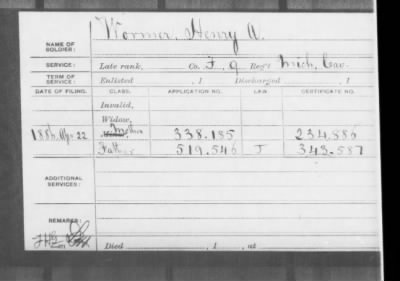 Wormer, Henry A.
NAME OF SOLDIER:
SERVICE: Late rank, Co. F, 9 Reg't Mich. Cav.
TERM OF SERVICE: Enlisted , 1 Discharged , 1
DATE OF FILING. CLASS. APPLICATION NO. LAW CERTIFICATE NO.
Invalid,
Widow,
1886, Apr 22 Mother 338.185 234.886
Father 519.546 J 343.587
ADDITIONAL SERVICES:
REMARKS:
Died , 1 , at